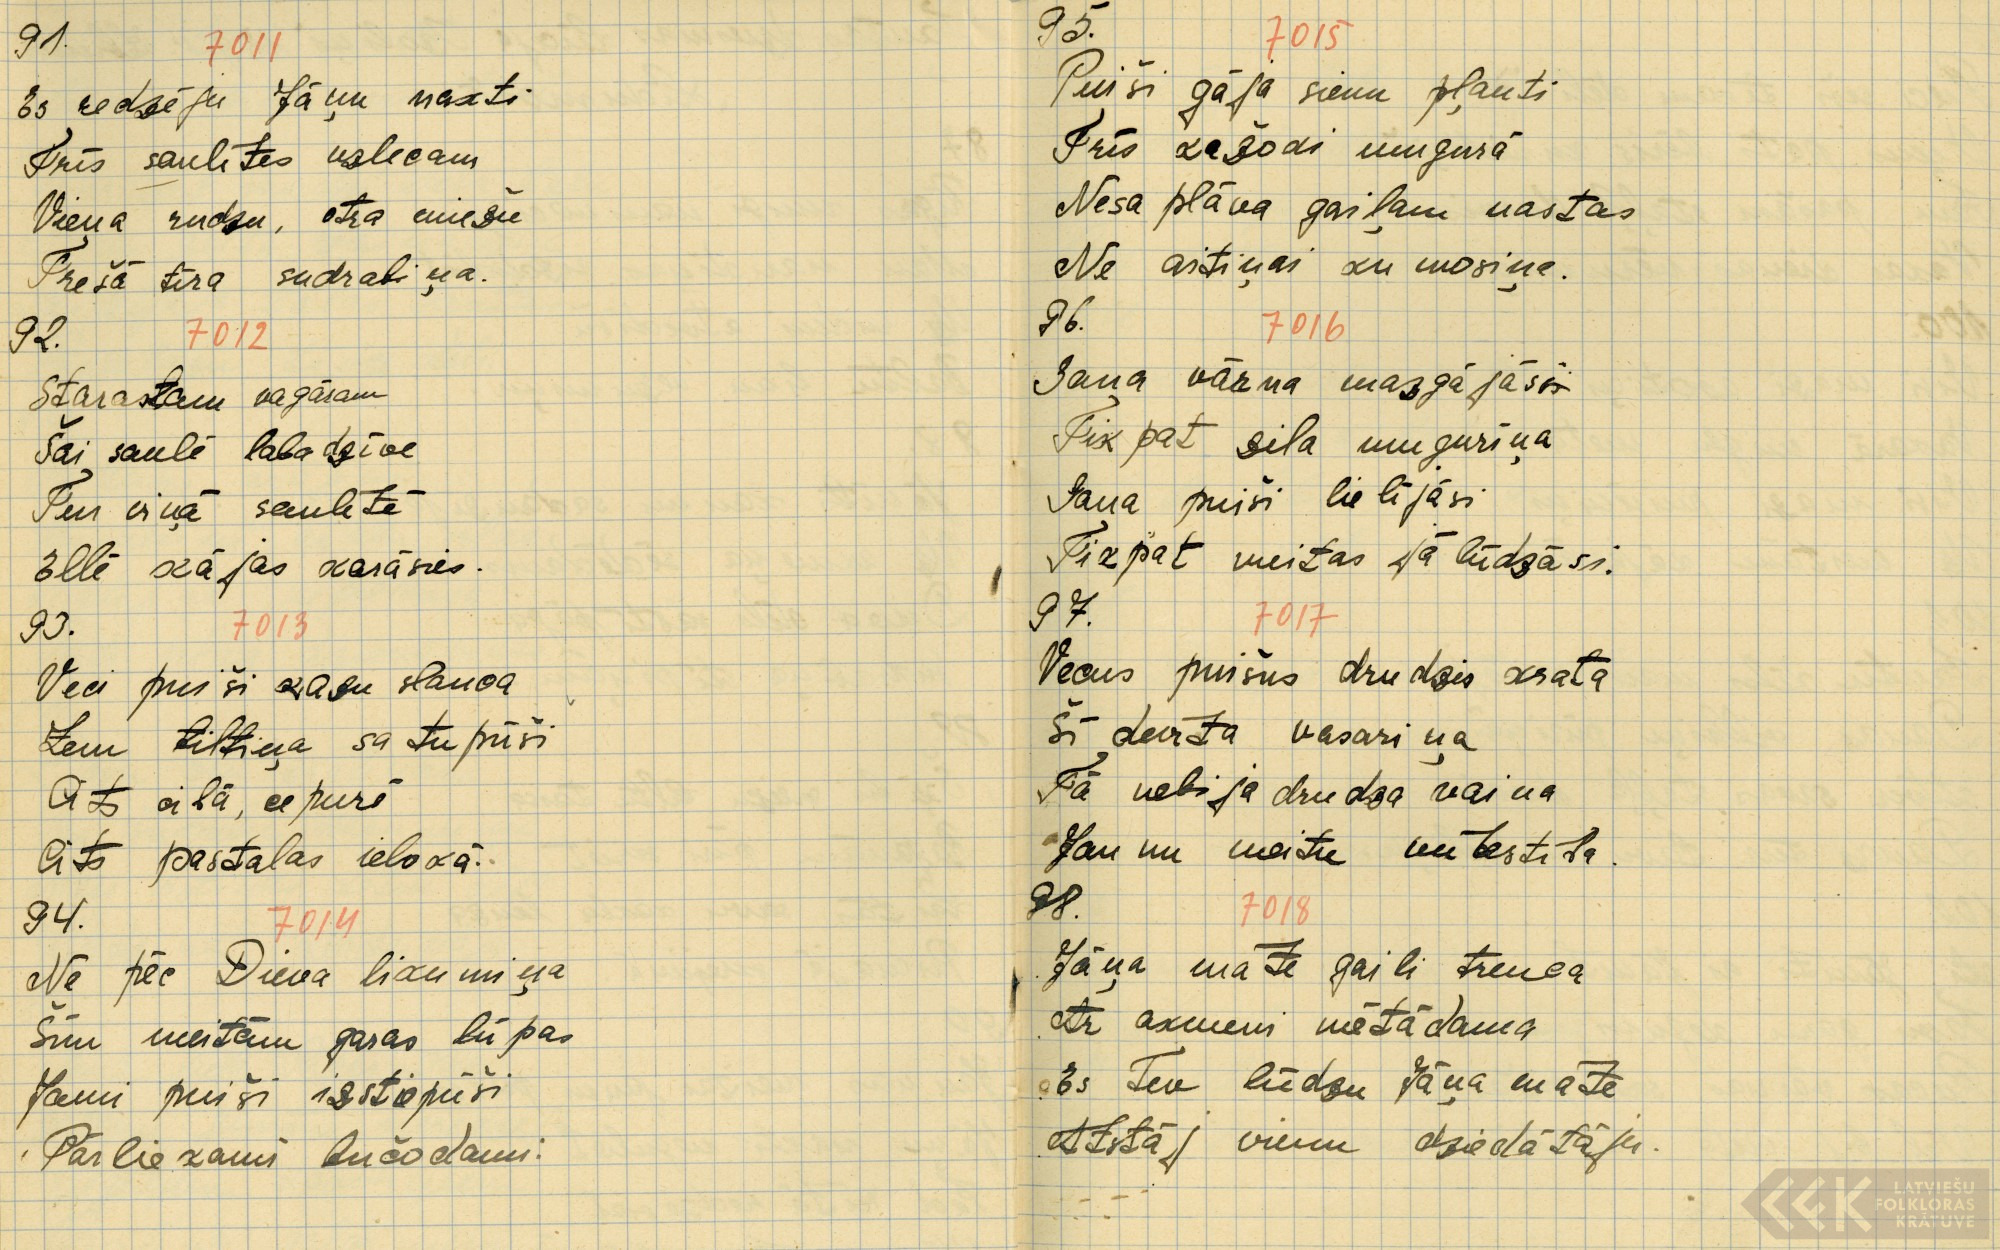 91. 7011
Es redzēju Jāņu nakti
Trīs saulītes uzlecam
Vieņa rudzu, otra miežu
Trešā tīra sudrabiņa.
92. 7012
Starastam vagāram
Šai saulē laba dzīve
Tur viņā saulītē
Ellē kājas karāsies.
93. 7013
Veci puiši kazu slauca
Zem tiltiņa satupūši
Cits cibā, cepurē
Cits pastalas ielokā.
94. 7014
Nē pēc Dieva likumiņa
Šim meitām garas lūpas
Jauni puiši izstiepūši
Pārliekami bučodami.
95. 7015
Puiši gāja sienu pļauti
Trīs kažoki mugurā
Nesa pļāva gaiļam nastas
Nē aitiņai kumosiņa.
96. 7016
Gaņa vārna mazgājāsi
Tikpat zila muguriņa
Gaņa puiši lielījāsi
Tikpat meitas jālūdzāsi.
97. 7017
Vecus puišus drudzis krata
Šī devīta vasariņa
Tā nebija drudža vaina
Jaunu meitu mīlestība.
98. 7018
Jāņa māte gaili trenca
Ar akmeni mētādama
Es Tev lūdzu Jāņa māte
Atstāj vienu dziedātāju.
LATVIEŠU
FOLKLORAS
KRĀTUVE